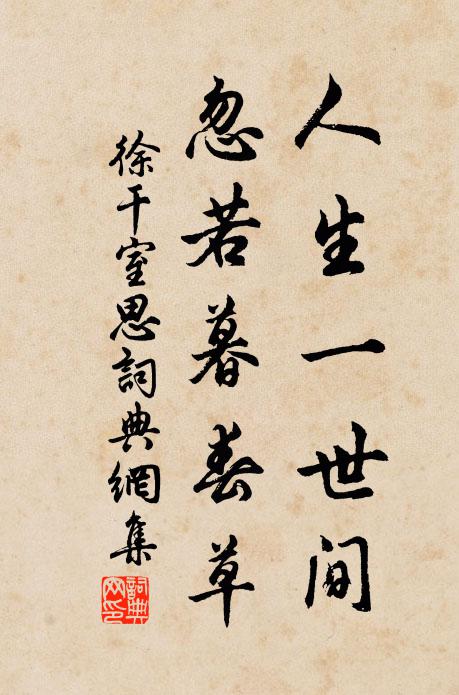 人生一世間
忽若暮春草
徐干室思詞典網集
詞典网印